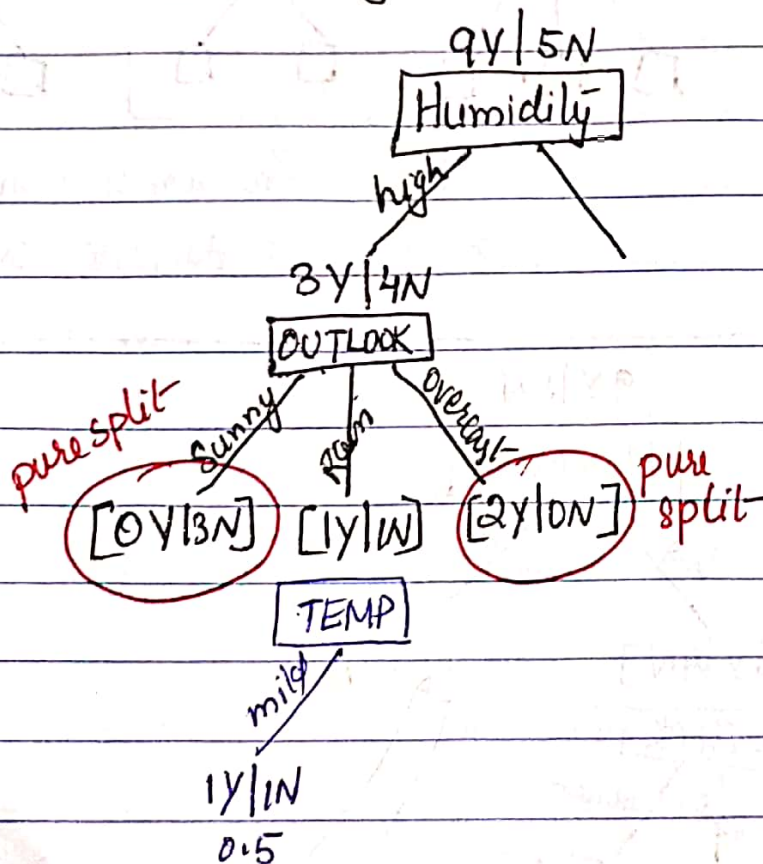 9Y|5N
Humidity
high
3Y|4N
OUTLOOK
pure split
Sunny
Rain
overcast
[0Y|3N]
[1Y|1N]
[2Y|0N]
pure
split
TEMP
mild
1Y|1N
0.5